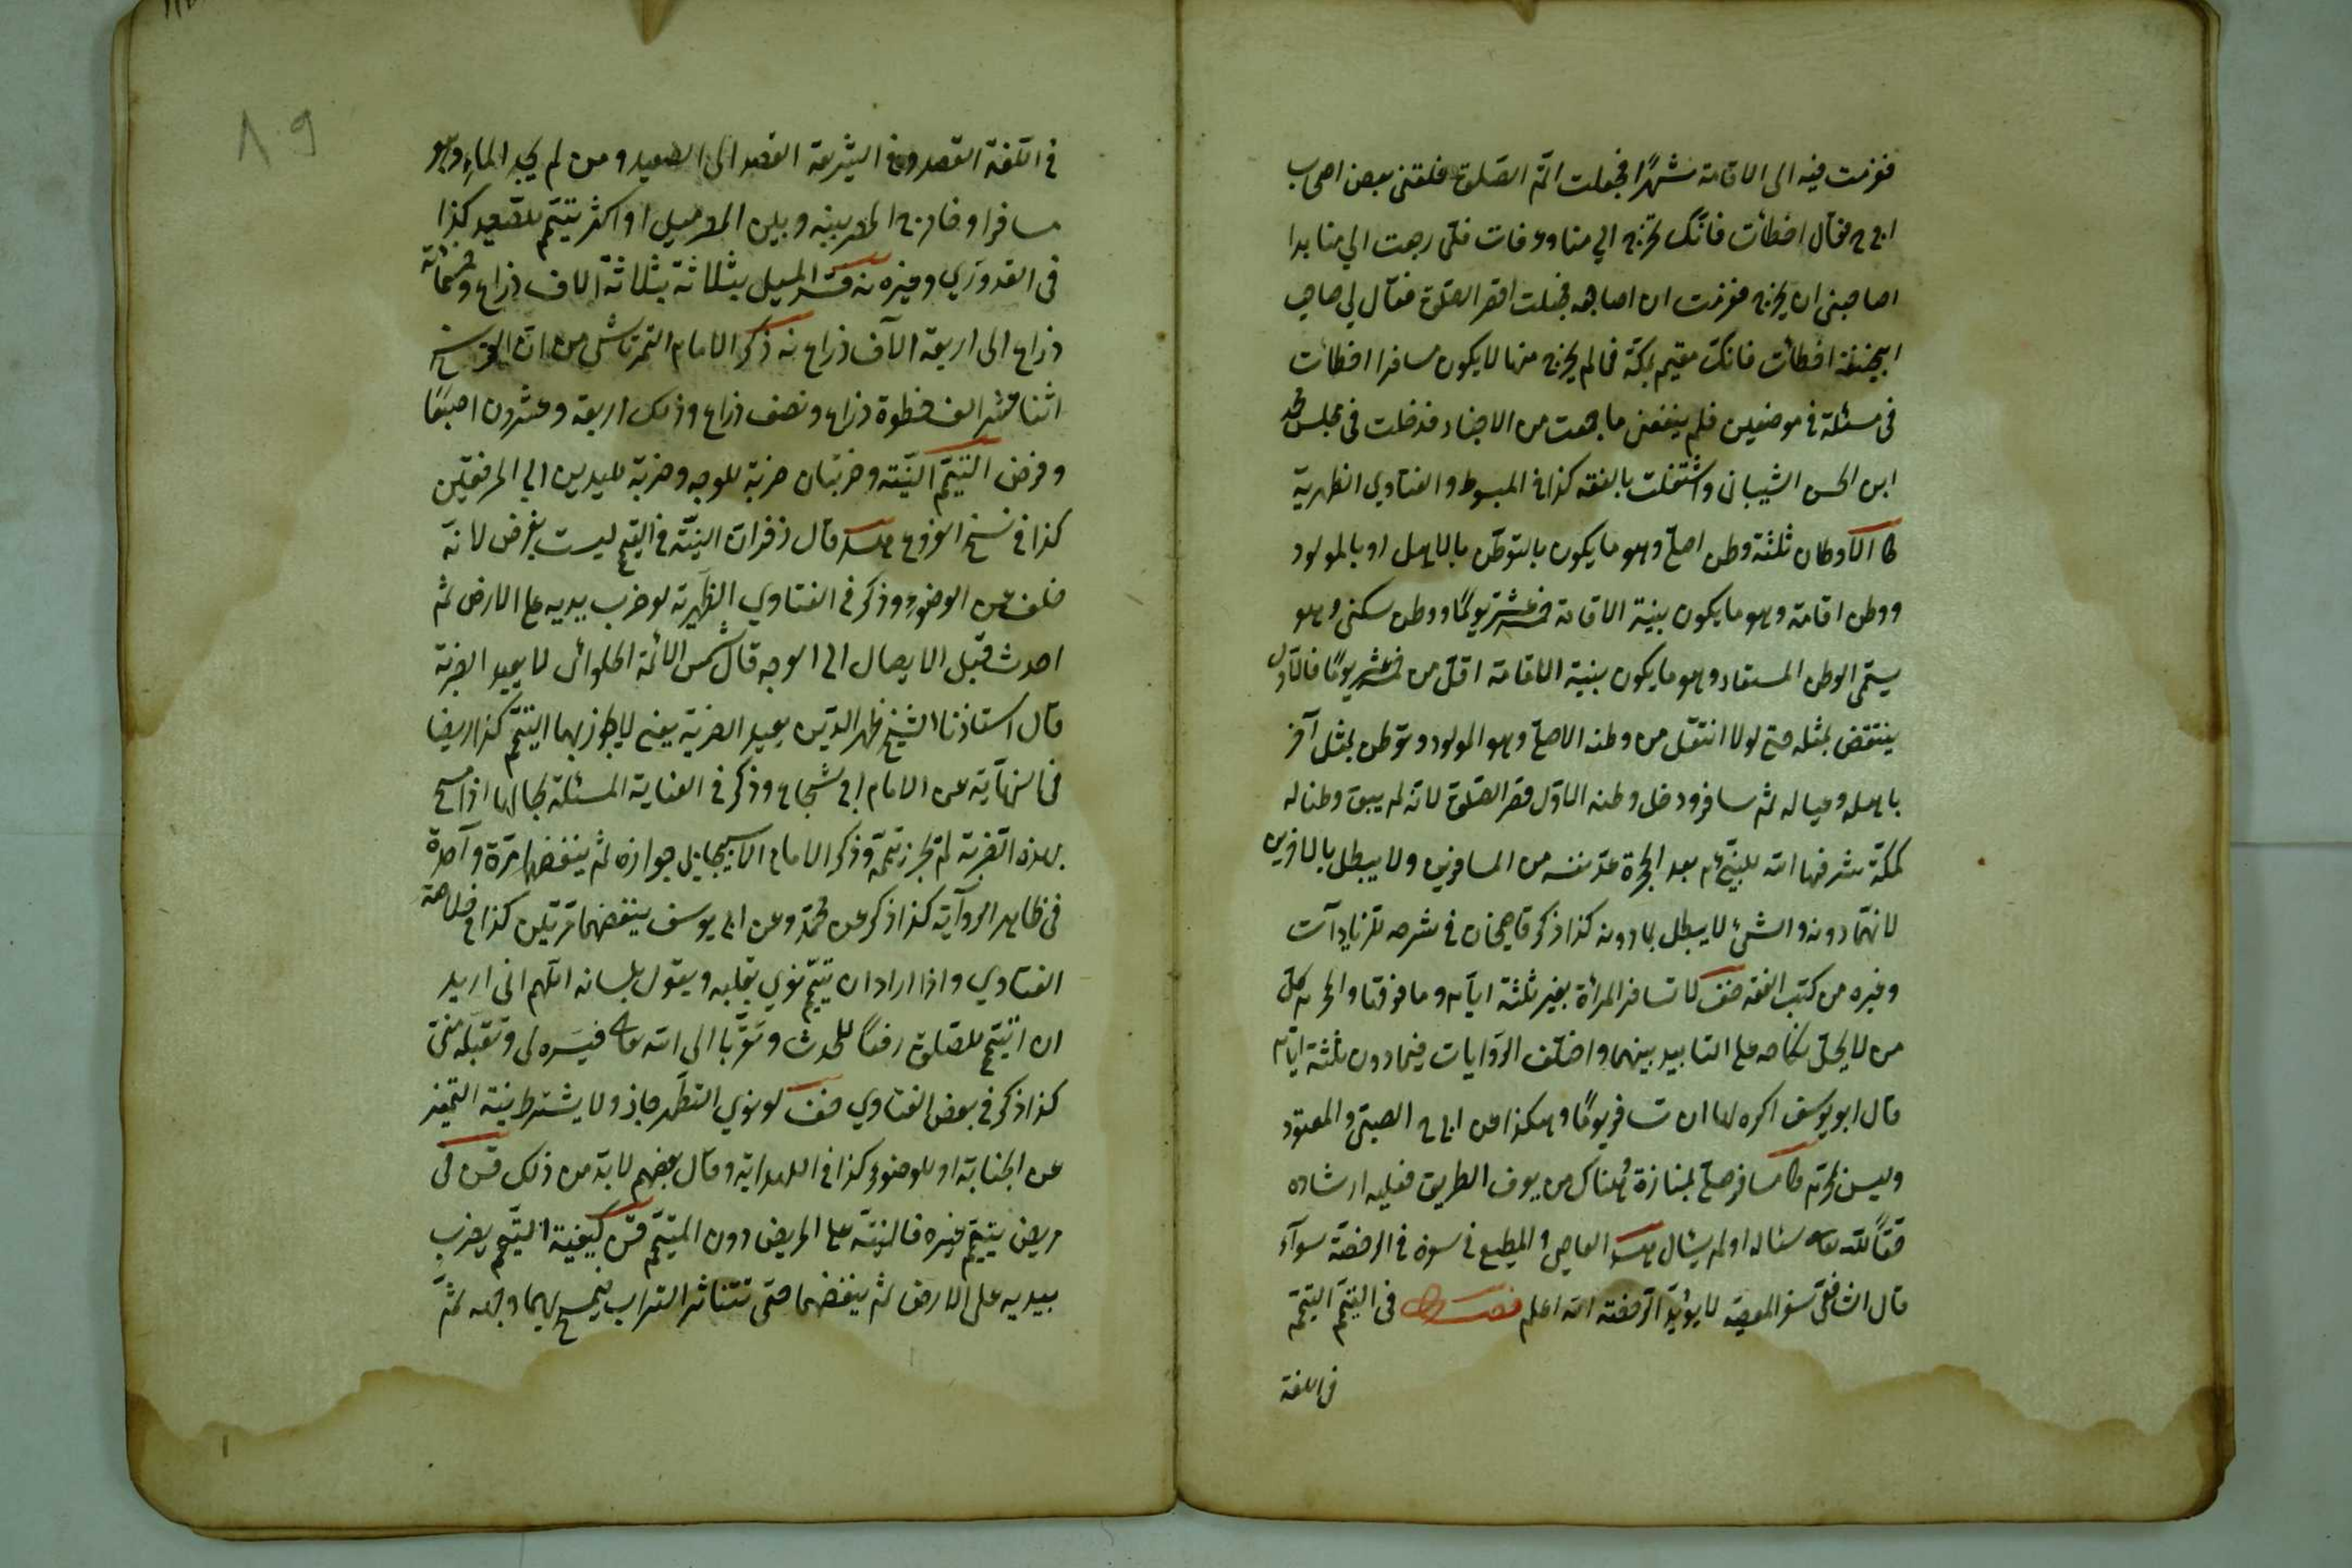 فعزمت فيه الى الاقامة شهرًا فجعلت اتم الصلوة فلقنى بعض اصحاب
ابى ح فقال اخطأت فانك تخرج الى منا وعرفات فلمّا رجعت الى منا بدا
لصاحبى ان يخرج فعزمت ان اصاحبه فجعلت اقصر الصلوة فقال لي صاحب
ابيحنيفة اخطأت فانك مقيم بمكة فما لم يخرج منها لا يكون مسافرا اخطأت
فى مسئلة فى موضعين فلم ينفعنى ما جمعت من الاخبار فدخلت فى مجلس محمد
ابن الحسن الشيبانى واشتغلت بالفقه كذا فى المبسوط والفتاوي الظهرية
ط الاوطان ثلثة وطن اصلى وهو ما يكون بالتوطن بالاهل او بالمولود
ووطن اقامة وهو ما يكون بنية الاقامة خمسة عشر يومًا ووطن سكنى وهو
يسمى الوطن المستعار وهو ما يكون بنية الاقامة اقل من خمسة عشر يومًا فالاول
ينتقض بمثله حتى لو انتقل من وطنه الاصلى وهو المولود وتوطن بمثل آخر
باهله وعياله ثم سافر ودخل وطنه الاول قصر الصلوة لانه لم يبق وطنا له
كمكة شرفها الله للنبى ع م بعد الهجرة عدّ نفسه من المسافرين ولا يبطل بالاخرين
لانهما دونه والشئ لا يبطل بما دونه كذا ذكر قاضيخان فى شرحه للزيادات
وغيره من كتب الفقه صف لا تسافر المرأة بغير ثلثة ايام وما فوقها والمحرم كل
من لا يحل نكاحه على التأبيد بينهما واختلف الروايات فيما دون ثلثة ايام
قال ابو يوسف اكره لها ان تسافر يومًا وهكذا عن ابى ح الصبى والمعتوه
وليس بمحرم ط مسافر صلى بمفازة وهناك من يعرف الطريق فعليه ارشاده
حقًا لله تعالى سئاله او لم يسئال هد العاصى والمطيع فى سفره فى الرخصة سوآء
قال الشافعى سفر المعصية لا يؤيد الرخصة الله اعلم فصل فى التيمّم التيمّم
فى اللغة
٨٩
فى اللغة القصد وفى الشريعة القصد الى الصعيد ومن لم يجد الماء وهو
مسافر او خارج المصر بينه وبين المصر ميل او اكثر يتيمّم بالصعيد كذا
فى القدوري وغيره نه قدّر الميل بثلاثة بثلاثة الاف ذراع وخمسمائة
ذراع الى اربعة الآف ذراع نه ذكر الامام التمرتاشى من ان الفرسخ
اثنا عشر الف خطوة ذراع ونصف ذراع وذلك اربعة وعشرون اصبعًا
وفرض التيمّم النيّة وضربتان ضربة للوجه وضربة لليدين الى المرفقين
كذا فى نسخ الفروع هد قال زفر ان النيّة فى التيمّم ليست بفرض لانه
خلف عن الوضوء وذكر فى الفتاوي الظهرية لو ضرب يديه على الارض ثم
احدث قبل الايصال الى الوجه قال شمس الائمة الحلوائى لا يعيد الضربة
قال استاذنا الشيخ ظهر الدّين يعيد الضربة يعنى لا يجوز بهما التيمّم كذا ايضا
فى النهاية عن الامام ابى شجاع وذكر فى العناية المسئلة بحالها اذا مسح
بهذه الضربة لم يجز تيممه وذكر الامام الاسبيجابى جوازه ثم ينفضهما مرة واحدة
فى ظاهر الرواية كذا ذكر عن محمد وعن ابى يوسف ينفضهما مرتين كذا فى خلاصة
الفتاوي واذا اراد ان يتيمّم نوي بقلبه ويقول بلسانه اللهم انى اريد
ان اتيمّم للصلوة رفعًا للحدث وتقرّبا الى الله تعالى فيسره لى وتقبله منى
كذا ذكر فى بعض الفتاوي صف لو نوي التطهر جاز ولا يشترط نية التمييز
عن الجنابة او للوضوء كذا فى الهداية وقال بعضهم لابدّ من ذلك قن فى
مريض يتيمّم غيره فالنيّة على المريض دون الميتمّم قن كيفية التيمّم يضرب
بيديه على الارض ثم ينفضهما حتى تتناثر التراب فيمسح بهما وجهه ثمّ